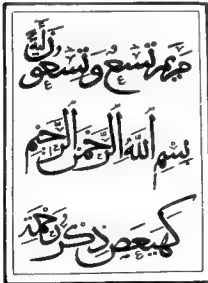 مريم تسع وتسعون آية
بِسْمِ اللَّهِ الرَّحْمَٰنِ الرَّحِيمِ
كهيعص ذكر رحمة